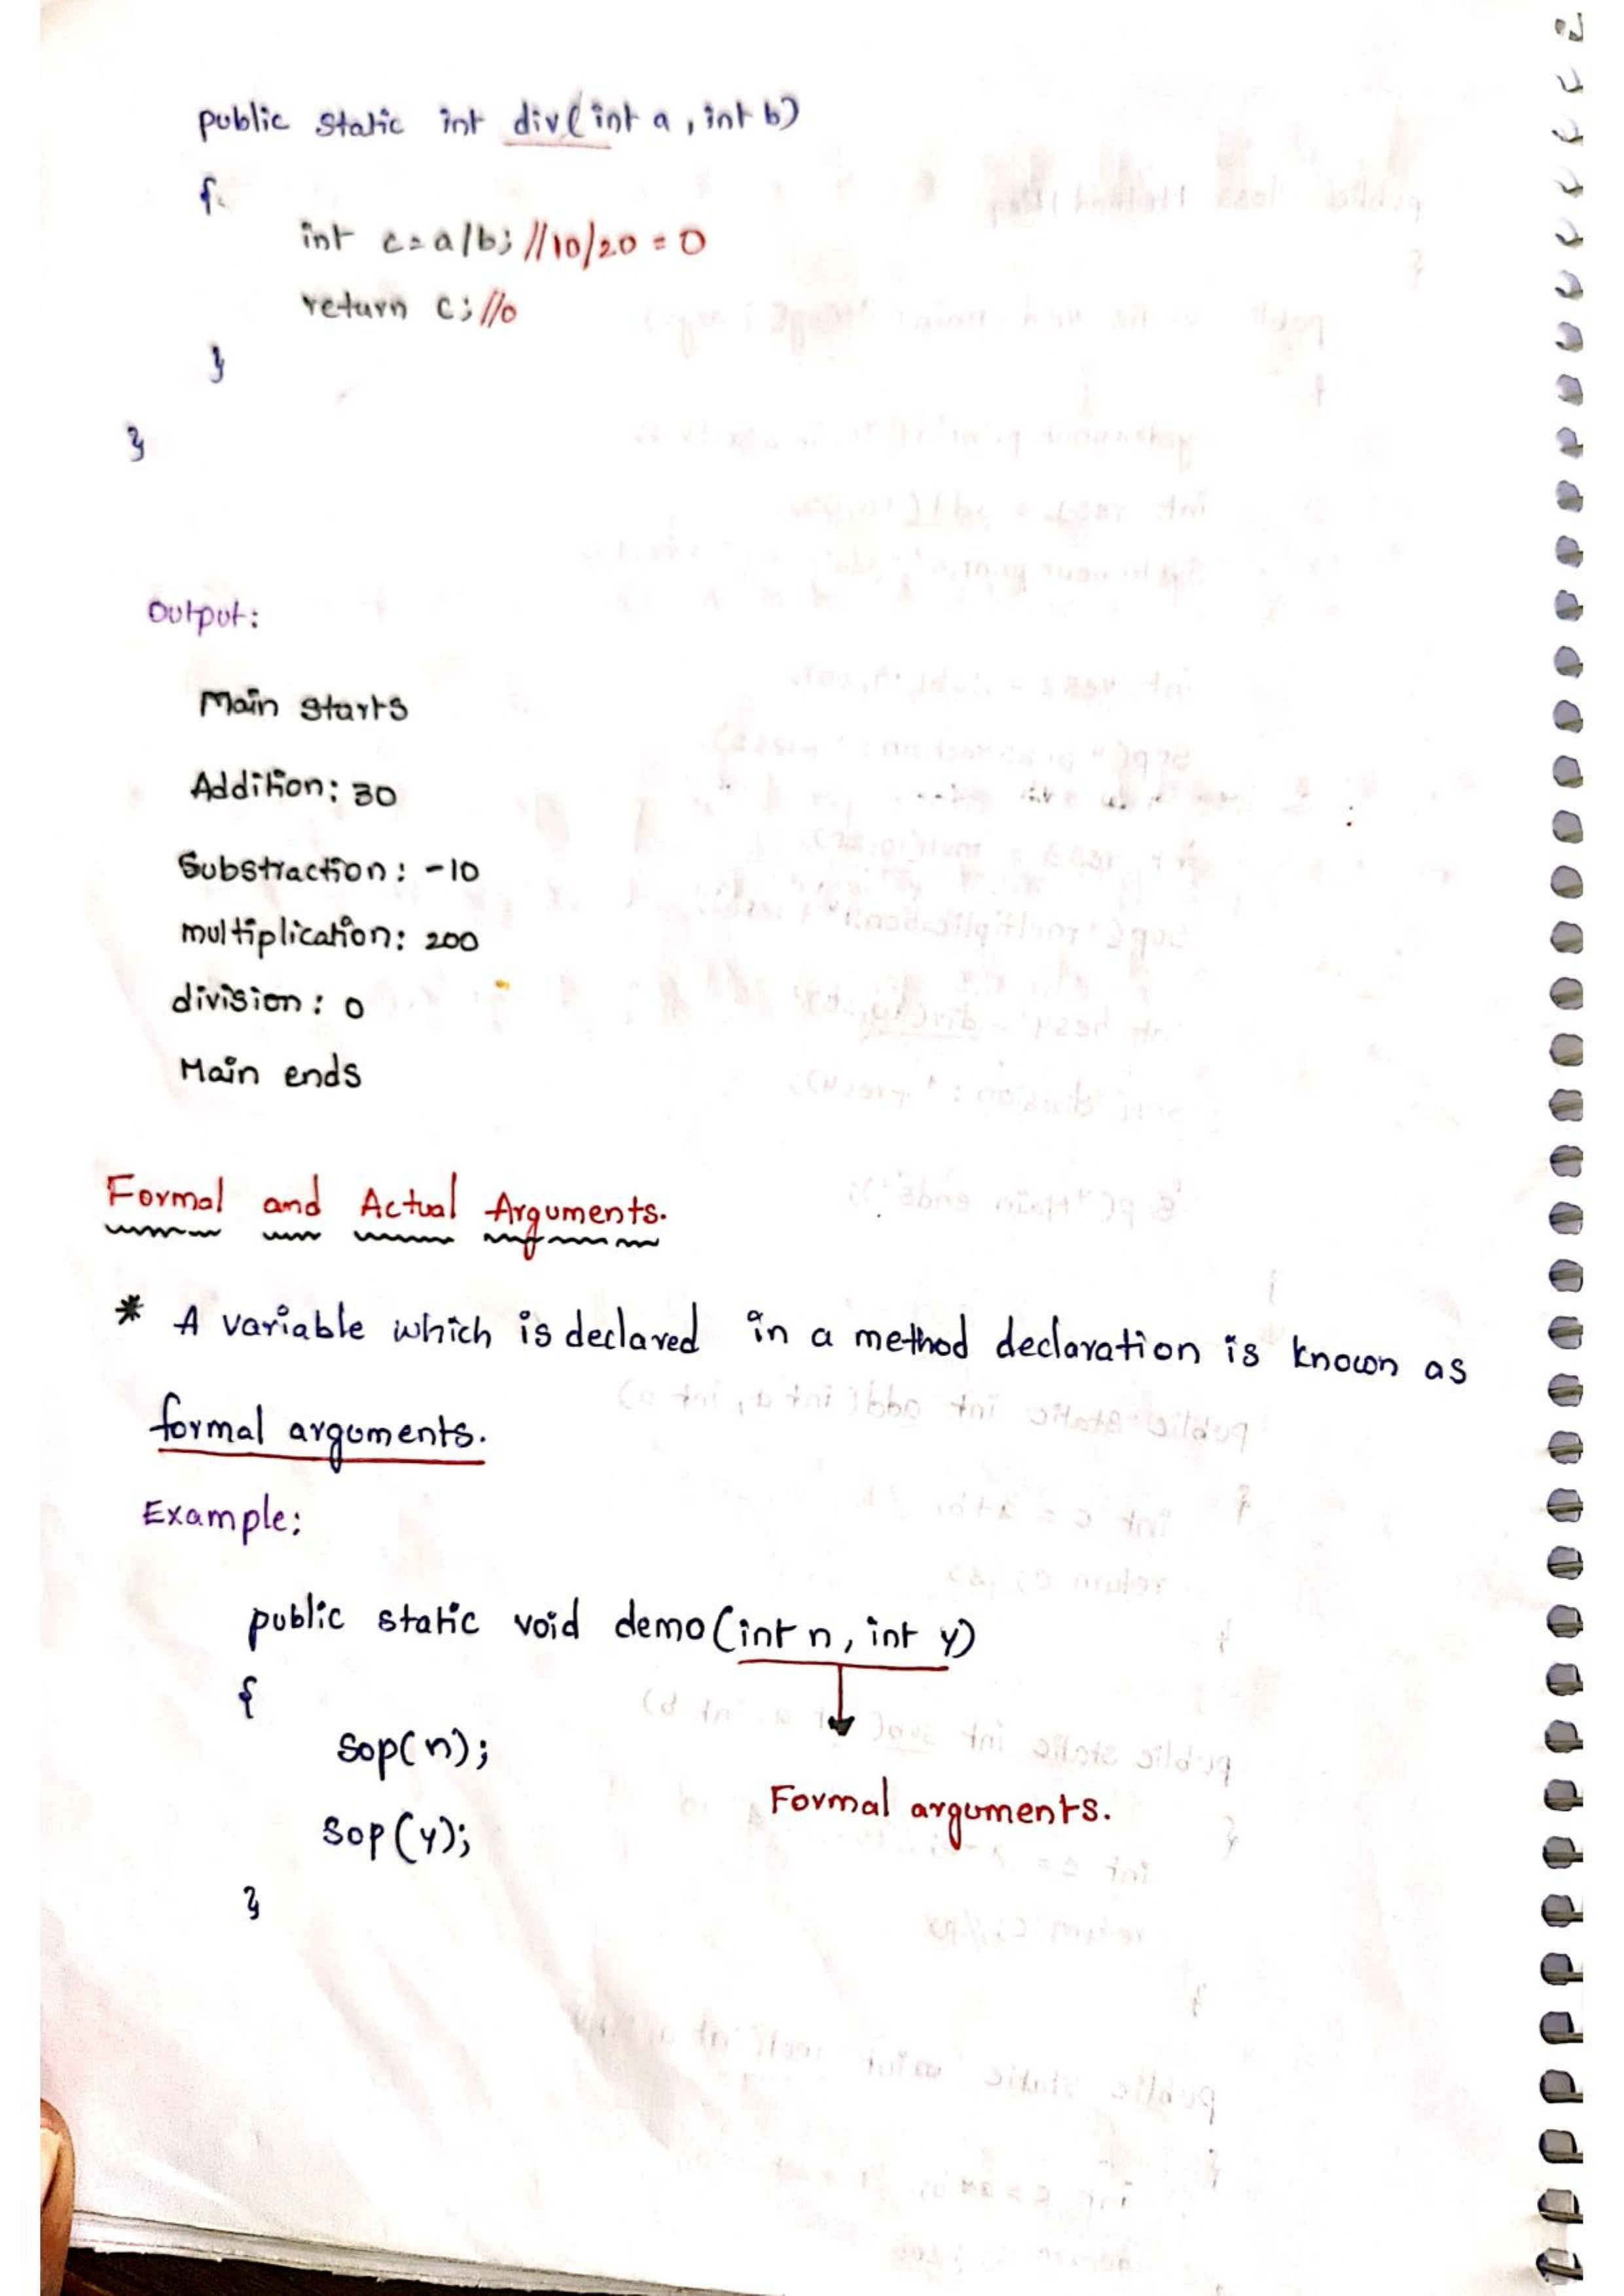 public static int div(int a, int b)
{
int c=a/b; //10/20 = 0
return c; //0
}
}
Output:
Main starts
Addition: 30
Substraction: -10
multiplication: 200
division: 0
Main ends
Formal and Actual Arguments.
* A variable which is declared in a method declaration is known as
formal arguments.
Example:
public static void demo(int n, int y)
{
Sop(n);
Formal arguments.
Sop(y);
}